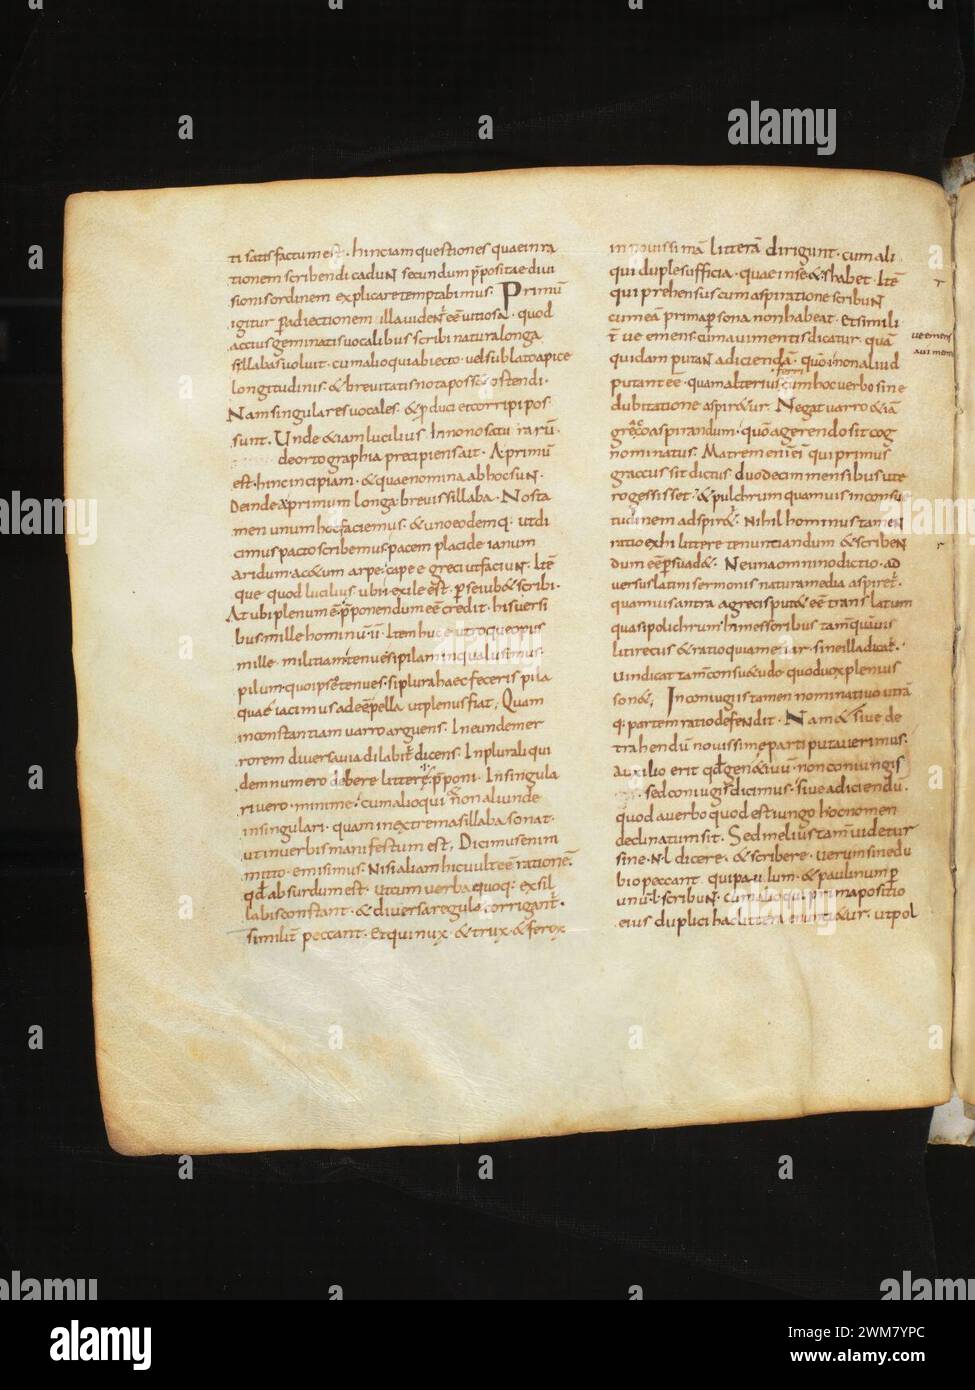 ti satisfactum est · hinc iam questiones quae in ra
tionem scribendi caduN secundum p̄positae diui
sionis ordinem explicare temptabimus. Primū
igitur p adiectionem illa uident̄ eē uitiosa · quod
accius geminatis vocalibus scribi natura longa
sillabas voluit · cum alioqui abiecto · vel sublato apice
longitudinis · & brevitatis nota posse ostendi ·
Nam singulares vocales · & p̄duci et corripi pos
sunt · Unde & iam lucilius · In nono satu rarū ·
deortographia precipiens ait · A primū
est · hinc incipiam · & quae nomina ab hoc suN ·
Deinde a primum longa · brevis sillaba · Nos ta
men unum hoc faciemus · & uno eodemq · ut di
cimus pacto scribemus · pacem placide ianum
aridum · acetum
que quod lucilius ubi i exile est · p se iub& scribi ·
At ubi plenum ē · p̄ponendum eē credit · his versi
bus · mille hominū ·
mille · militiam
pilum · quo ipse tenues · si plura haec feceris pila
quae iacimus · ut plenus fiat · Quam
inconstantiam varro arguens · In eundem er
rorem diversa via dilabit̄ · dicens · In plurali qui
dem numero debere littere · p̄poni · In singula
ri vero · minime · cum alioqui n̄on aliunde
in singulari · quam in extrema sillaba sonat ·
ut in verbis manifestum est, Dicimus enim
mitto · emisimus · Nisi aliam hic vult eē rationē ·
qd̄ absurdum est · ut cum verba quoq · ex sil
labis constant · & diversa regula corrigant̄ ·
similit̄ peccant · Et qui nux · & trux · & ferox
in novissimā litterā dirigunt · cum ali
qui duplex sufficia · quae in se & s habet · Itē
qui prehensus cum aspiratione scribuN
cum eā prima p̄sona non habeat · Et simili
t̄ ve emens · cum a vi mentis dicatur · quā
quidam putaN adiciendā · quō in on aliud
putant eē · quam alterius cum hoc verbo sine
ferri
dubitatione aspir&ur · Negat varro &iā
grēco aspirandum · quō agerendo sit cog
nominatus · Matrem enī ei qui primus
graccus sit dictus duodecim mensibus ute
ro gessisset · & pulchrum quamvis in consu
tudinem adspir& · Nihil hominus tameN
nitio exhi littere tenuntiandum & scribeN
dum eē p̄suad& · Neuna omnino dictio · ad
versus latini sermonis natura media aspiret̄ ·
quamvis antra agrecis put& eē translatum
quasi polichrum · In messoribus tamquāvis
liti rectus & ratio quia me · sine illa dicat̄ ·
vindicat tam̄ consu&udo quod vox plenius
son&; In coniugiis tamen nominativo utrā
q · partem ratio defeNdit · Nam & sive de
trahendū novissime parti putaverimus ·
auxilio erit qd̄ gen&ivū · non coniungis
sed coniugis dicimus · sive adiciendū ·
quod a verbo quod est iungo hoc nomen
declinatum sit · Sed melius tam̄ videtur
sine · N · l dicere · & scribere · verum sine du
bio peccant qui paulum · & paulinum p
unū · l · scribuN · cum alioqui prima positio
eius duplici hac littera enunti&ur · ut pol
r
ve emens
a vi mentis
alamy
Image ID: 2WM7YPC
www.alamy.com